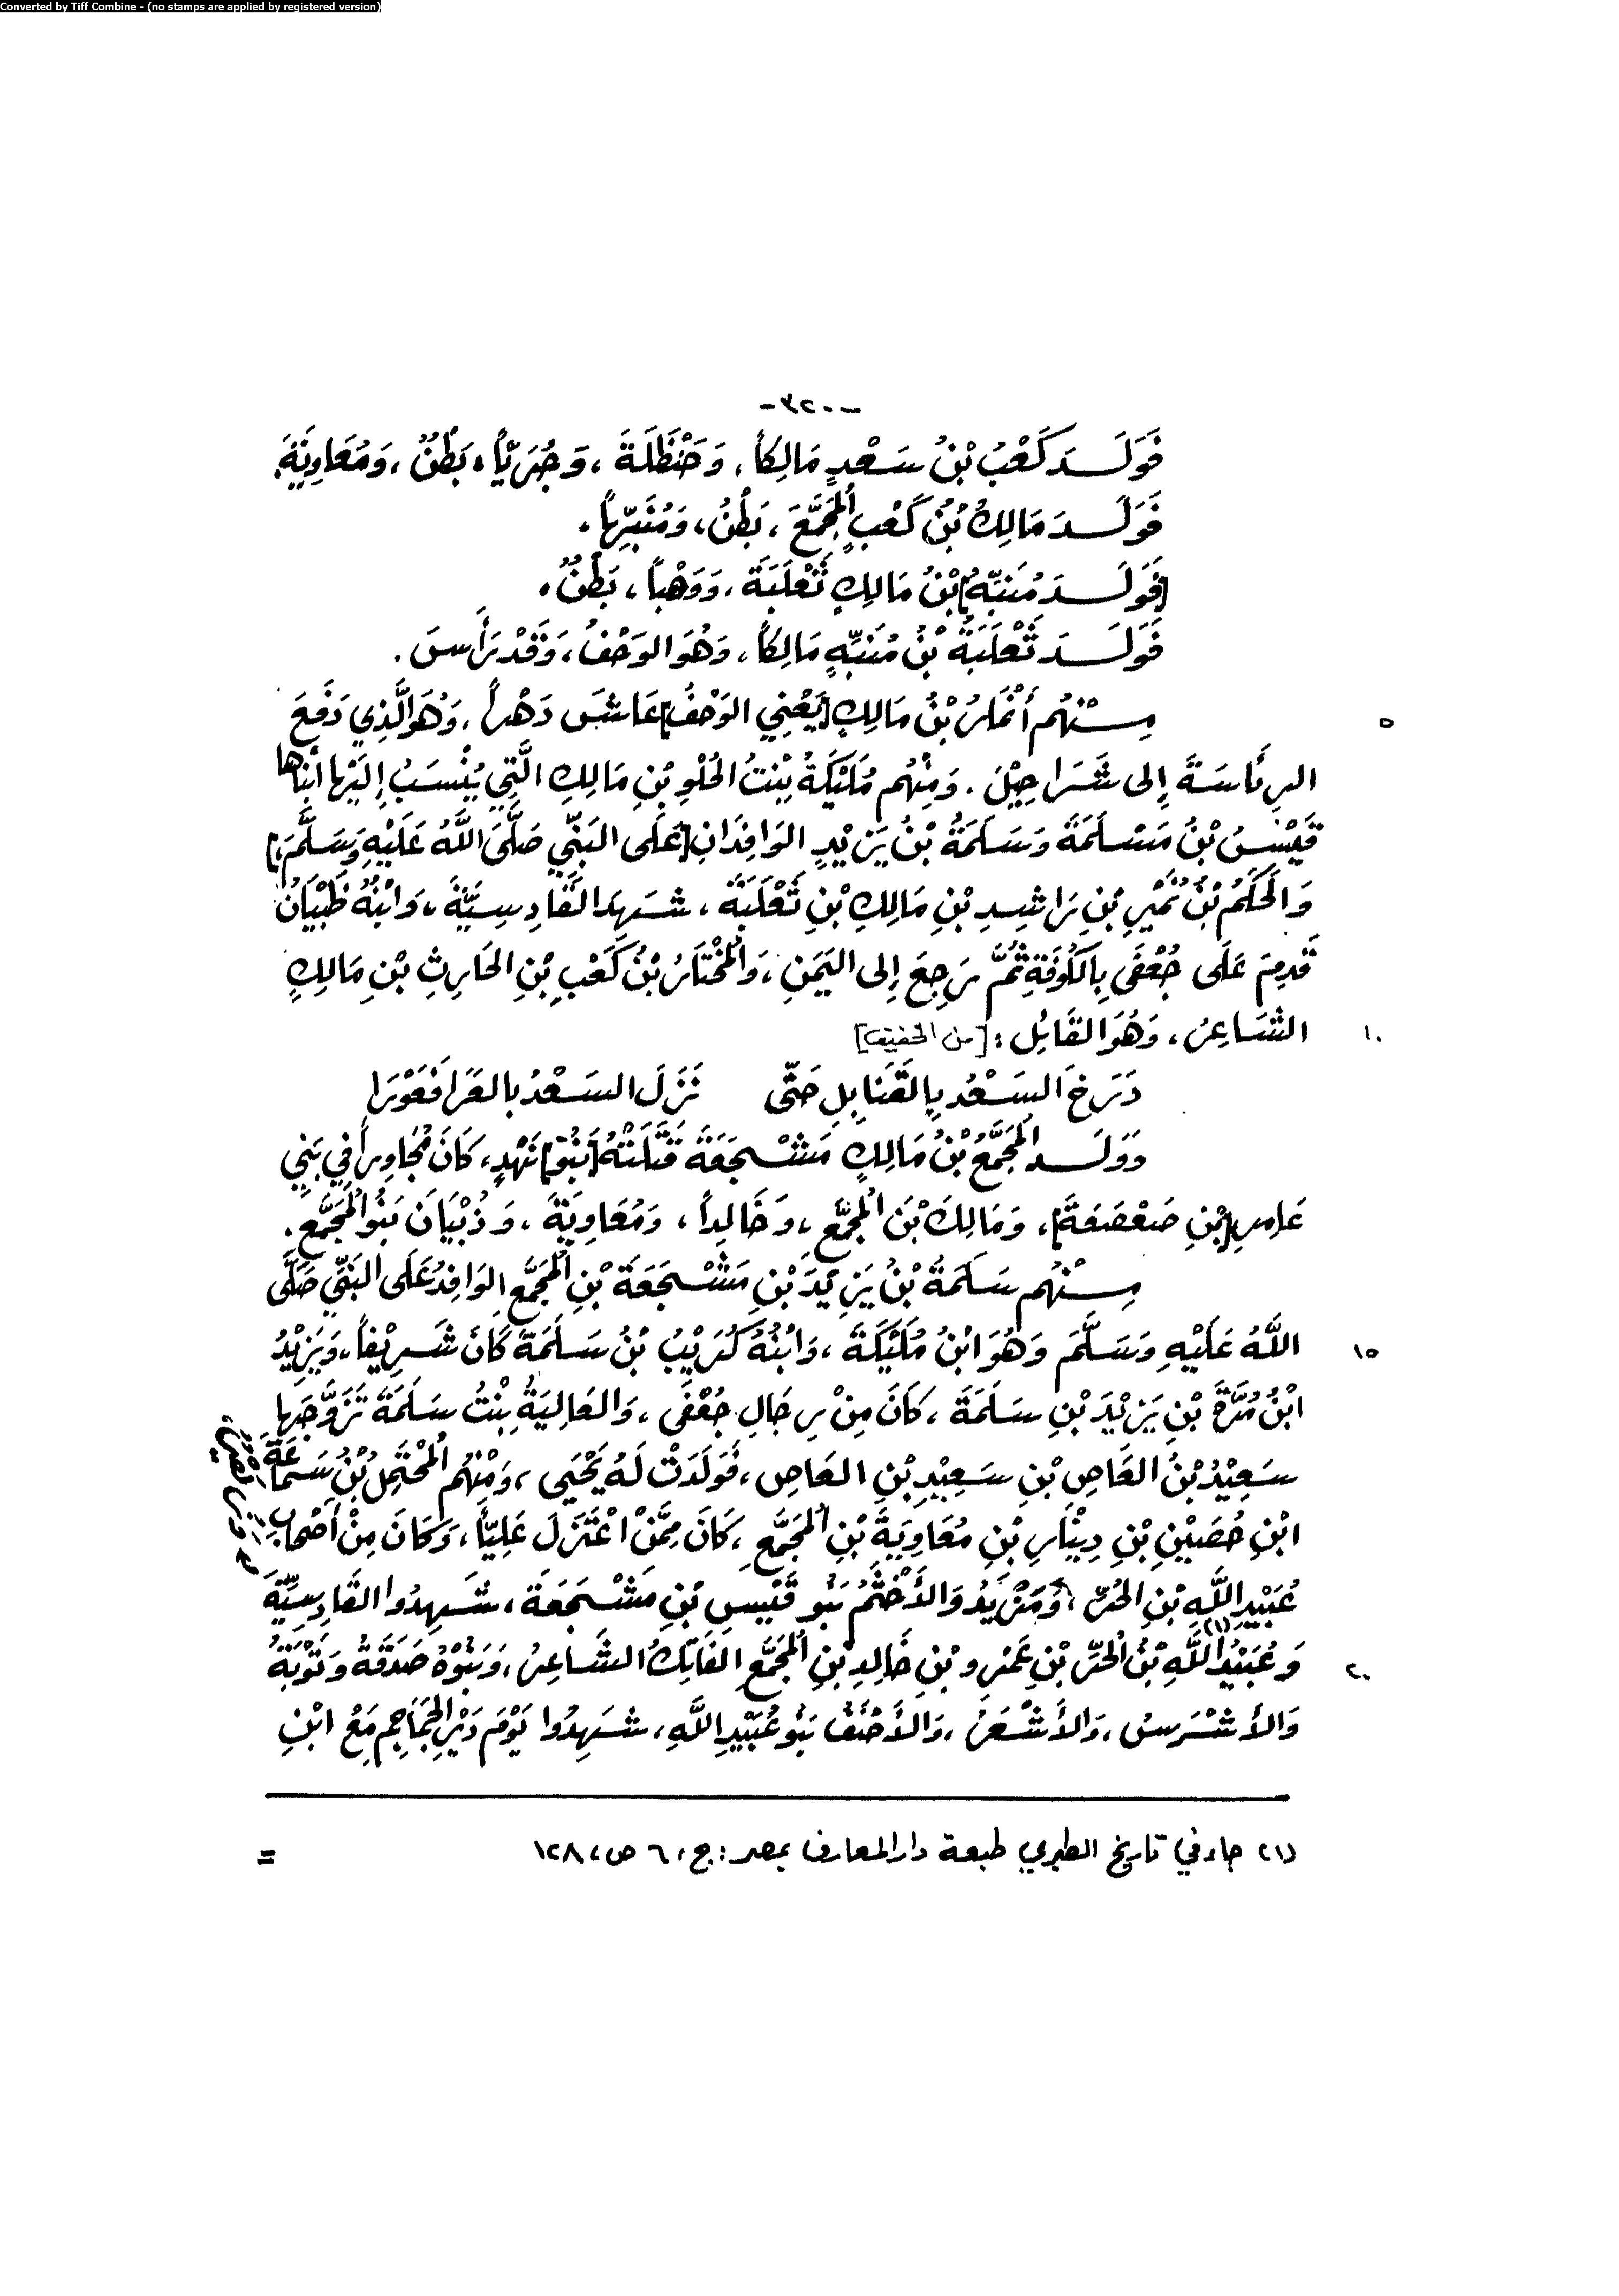 Converted by Tiff Combine - (no stamps are applied by registered version)
-٣٢٠-
فَوَلَدَ كَعْبُ بْنُ سَعْدٍ مَالِكاً، وَحَنْظَلَةَ، وَجُرَيّاً، بَطْنٌ، وَمُعَاوِيَةَ.
فَوَلَدَ مَالِكُ بْنُ كَعْبٍ المُجَمَّعَ، بَطْنٌ، وَمُنَبِّهاً.
[فَوَلَدَ مُنَبِّهُ] بْنُ مَالِكٍ ثَعْلَبَةَ، وَوَهْباً، بَطْنٌ.
فَوَلَدَ ثَعْلَبَةُ بْنُ مُنَبِّهٍ مَالِكاً، وَهُوَ الوَحْفُ، وَقَدْ رَأَسَ.
مِنْهُم أَنْمَارُ بْنُ مَالِكٍ [يَعْنِي الوَحْفَ] عَاشَ دَهْراً، وَهُوَ الَّذِي دَفَعَ
٥
الرِئَاسَةَ إِلى شَرَاحِيْلَ. وَمِنْهُم مُلَيْكَةُ بِنْتُ الحُلْوِ بْنِ مَالِكٍ الَّتِي يُنْسَبُ إِلَيْهَا ابْنَاهَا
قَيْسُ بْنُ مَسْلَمَةَ وَسَلَمَةُ بْنُ يَزِيْدٍ الوَافِدَانِ [عَلَى النَبِّي صَلَّىَ اللَّهُ عَلَيْهِ وَسَلَّمَ]
وَالحَكَمُ بْنُ نُمَيْرِ بْنِ رَاشِدِ بْنِ مَالِكِ بْنِ ثَعْلَبَةَ، شَهِدَ القَادِسِيَّةَ، وَابْنُهُ ظَبْيَانُ
قَدِمَ عَلَى جُعْفَى بِالكُوفَةِ ثُمَّ رَجِعَ إِلى اليَمَنِ، وَالمُخْتَارُ بْنُ كَعْبِ بْنِ الحَارِثِ بْنِ مَالِكٍ
الشَاعِرُ، وَهُوَ القَائِلُ: [من الخفيف]
١٠
دَرَخَ السَعْدُ بِالقَنَابِلِ حَتَّى نَزَلَ السَعْدُ بالعَرَا فَعَوْرَا
وَوَلَدَ المُجَمَّعُ بْنُ مَالِكٍ مَشْجَعَةَ قَتَلَتْهُ [بَنُو] نَهْدٍ، كَانَ مُجَاوِراً فِي بَنِي
عَامِرِ [بْنِ صَعْصَعَةَ]، وَمَالِكَ بْنَ المُجَمَّعِ، وَخَالِداً، وَمُعَاوِيَةَ، وَذُبْيَانَ بَنُو المُجَمَّعِ.
مِنْهُم سَلَمَةُ بْنُ يَزِيْدَ بْنِ مَشْجَعَةَ بْنِ المُجَمَّعِ الوَافِدُ عَلَى النَبِّي صَلَّى
اللَّهُ عَلَيْهِ وَسَلَّمَ وَهُوَ ابْنُ مُلَيْكَةَ، وَابْنُهُ كُرَيْبُ بْنُ سَلَمَةَ كَانَ شَرِيْفاً، وَيَزِيْدُ
١٥
ابْنُ مُرَّةَ بْنِ يَزِيْدَ بْنِ سَلَمَةَ، كَانَ مِنْ رِجَالِ جُعْفَى، وَالعَالِيَةُ بِنْتُ سَلَمَةَ تَزَوَّجَها
سَعِيْدُ بْنُ العَاصِ بْنِ سَعِيْدِ بْنِ العَاصِ، فَوَلَدَتْ لَهُ يَحْيَى، وَمِنْهُم المُحْتَمِلُ بْنُ سَمَاعَةَ
ابْنِ حُصَيْنِ بْنِ دِيْنَارِ بْنِ مُعَاوِيَةَ بْنِ المُجَمَّعِ، كَانَ مِمَّنْ اعْتَزَلَ عَلِيّاً، وَكَانَ مِنْ أَصْحَابِ
عُبَيْدِ اللَّهِ بْنِ الحُرِّ، وَمَزْيَدُ وَالأَخْثَمُ بَنُو قَيْسِ بْنِ مَشْجَعَةَ، شَهِدُوا القَادِسِيَّةَ
وَعُبَيْدُ اللَّهِ (١) بْنُ الحُرِّ بْنِ عَمْرِو بْنِ خَالِدِ بْنِ المُجَمَّعِ الفَاتِكُ الشَاعِرُ، وَبَنُوْهُ صَدَقَةُ وَتَوْبَةُ
٢٠
وَالأَشْرَسُ، وَالأَشْعَرُ، وَالأَحْنَفُ بَنُو عُبَيْدِ اللَّهِ، شَهِدُوا يَوْمَ دَيْرِ الجَمَاجِمِ مَعْ ابْنِ
(١) جاء في تاريخ الطبري طبعة دار المعارف بمصر: ج، ٦ ص، ١٢٨ =